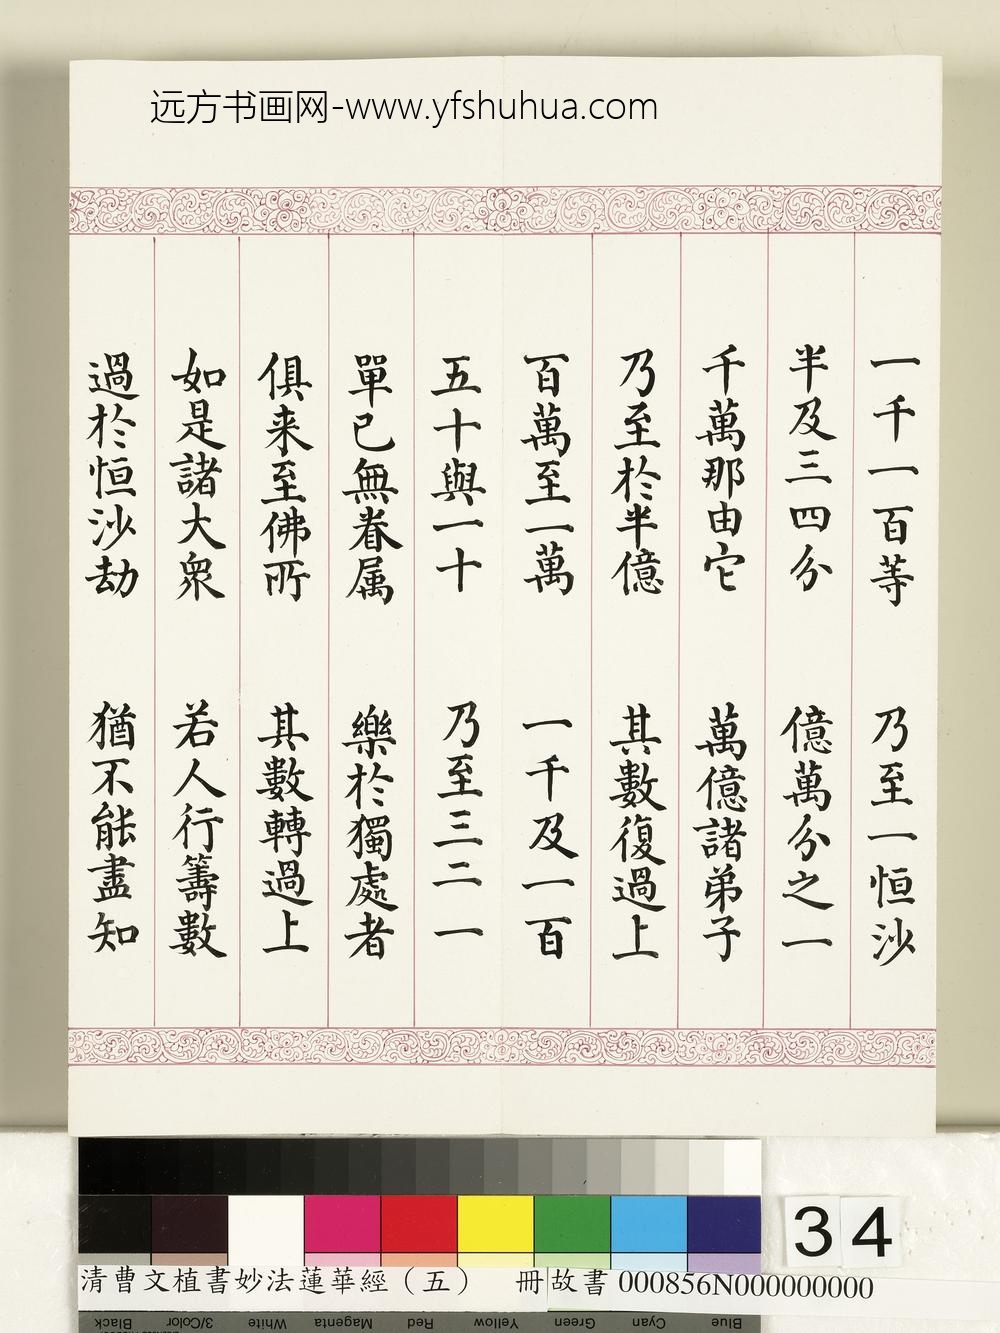 远方书画网-www.yfshuhua.com
一千一百等 乃至一恒沙
半及三四分 億萬分之一
千萬那由它 萬億諸弟子
乃至於半億 其數復過上
百萬至一萬 一千及一百
五十與一十 乃至三二一
單已無眷属 樂於獨處者
俱来至佛所 其數轉過上
如是諸大衆 若人行籌數
過於恒沙劫 猶不能盡知
34
清曹文植書妙法蓮華經（五） 冊 故書000856N000000000
Black 3/Color White Magenta Red Yellow Green Cyan Blue